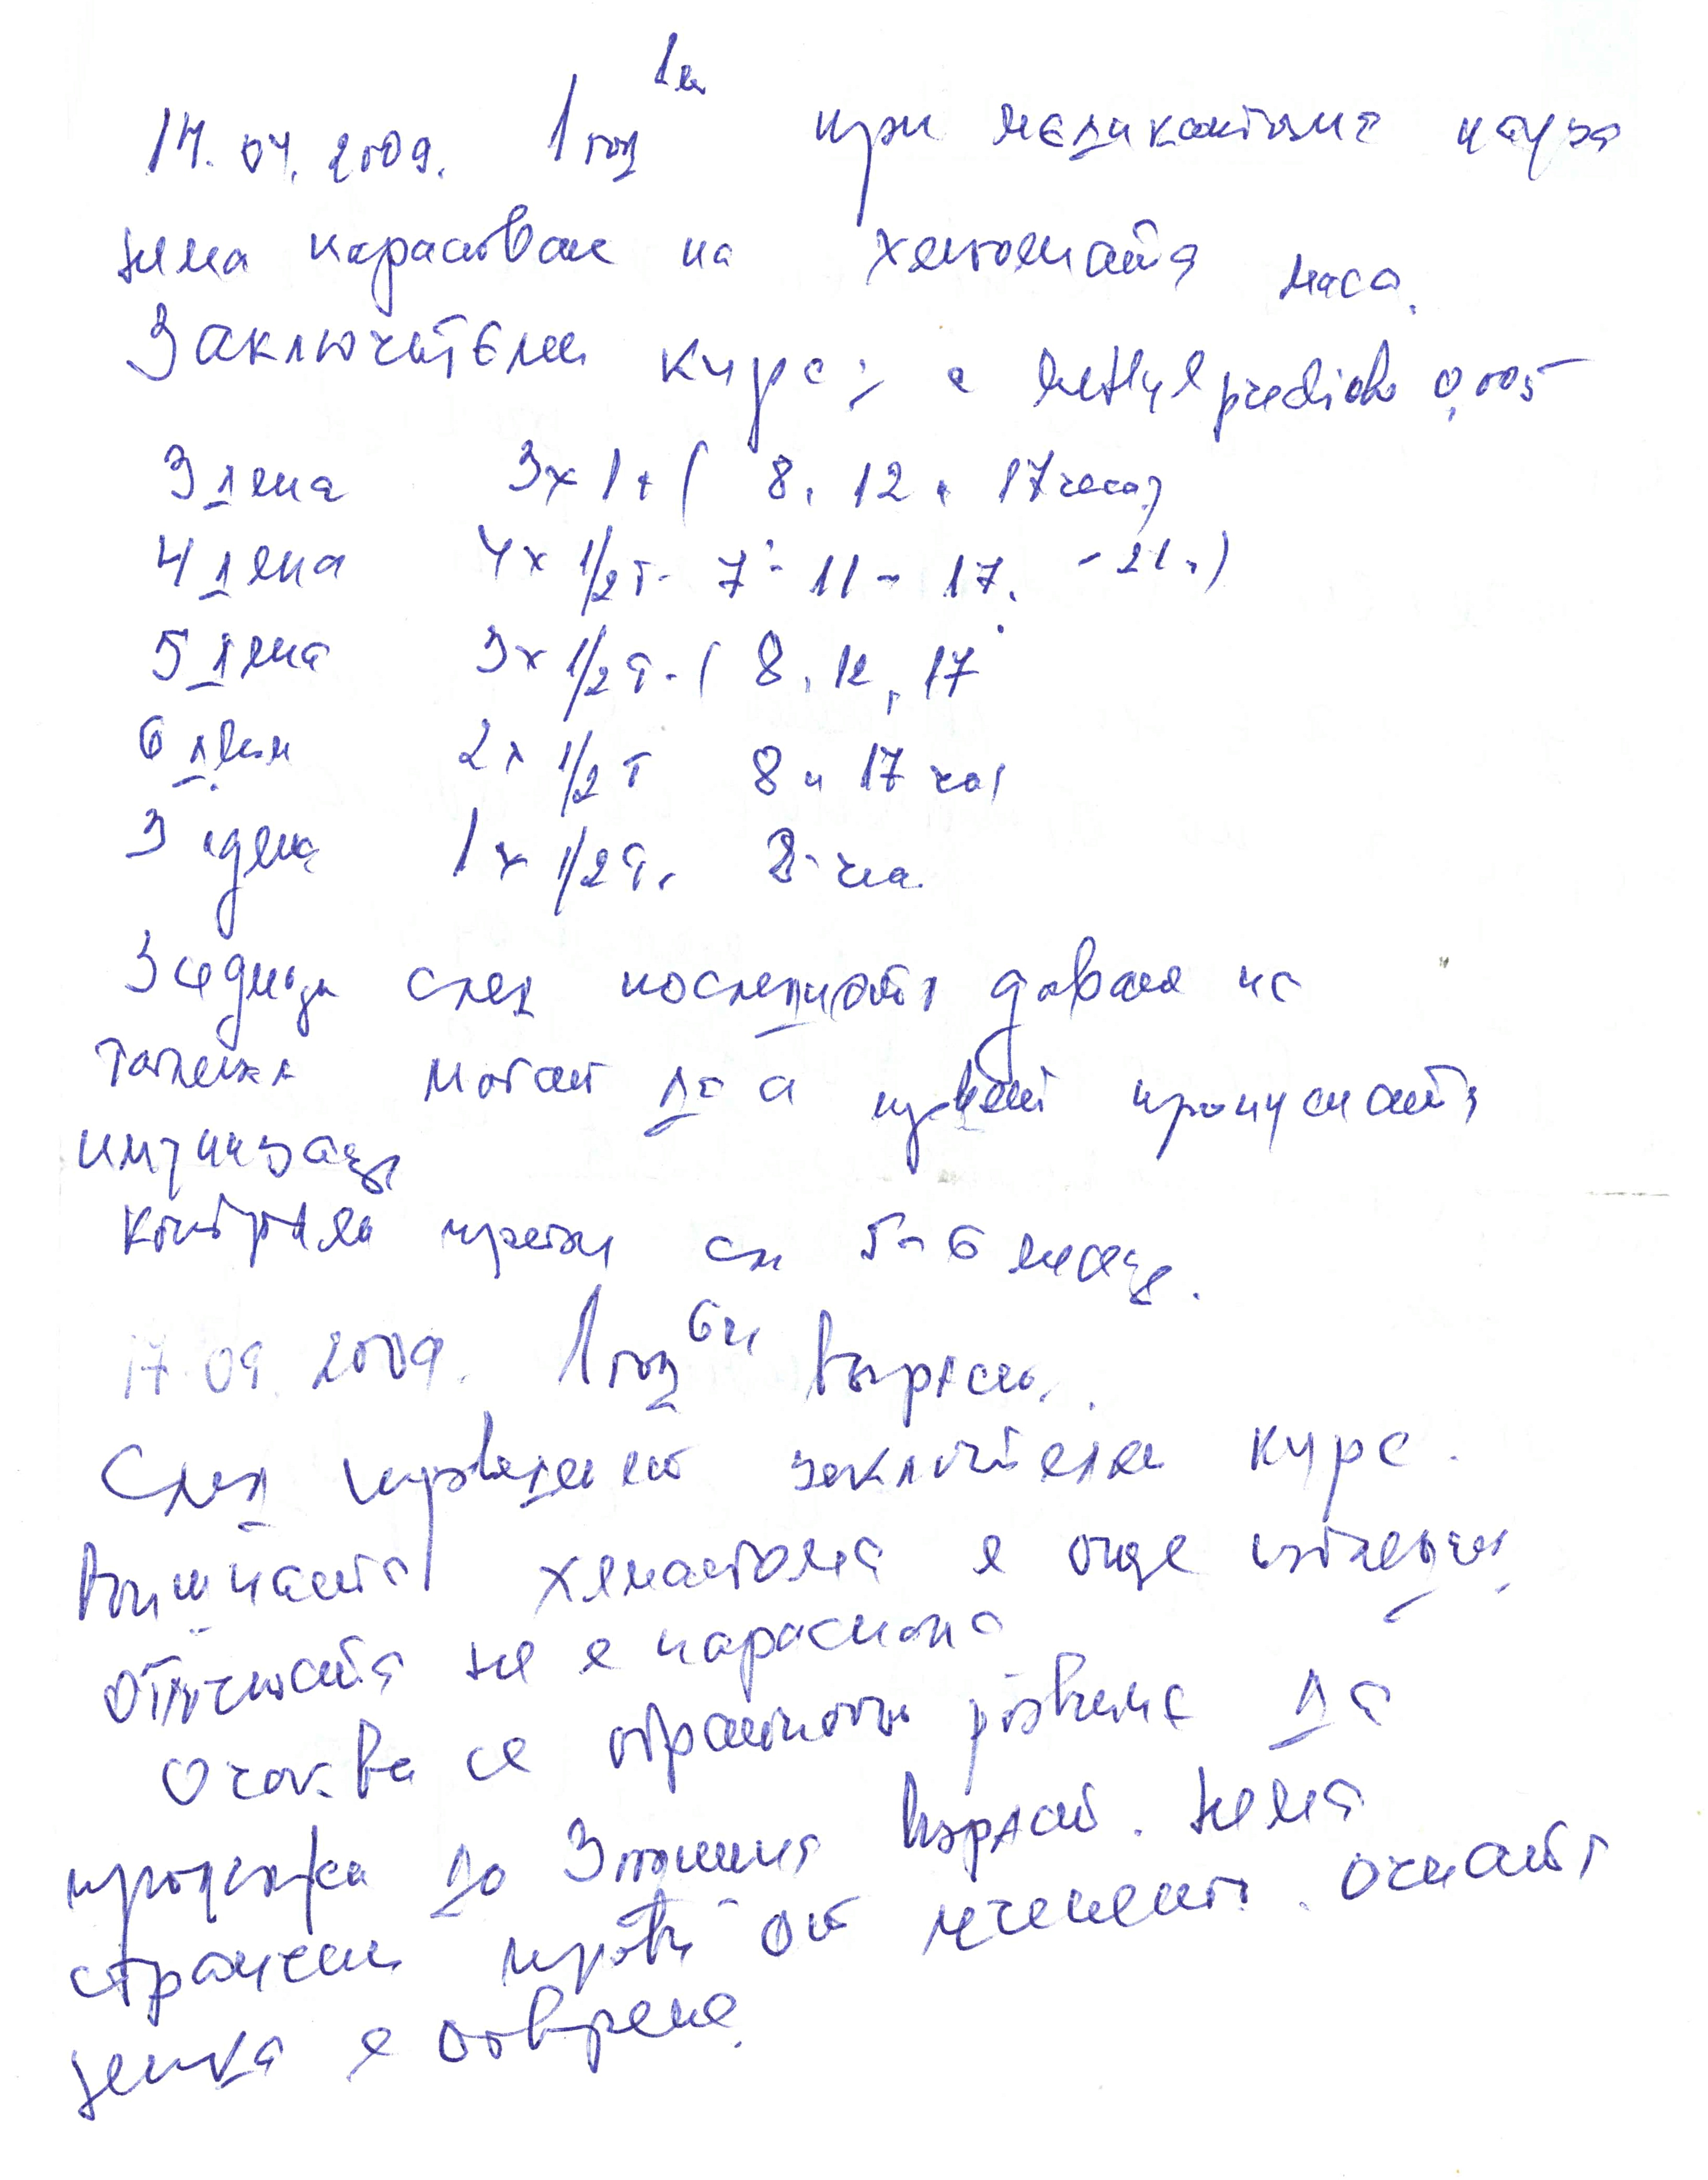 14.04.2009. 1 год 1м при медикаментозна пауза
няма нарастване на хемангиомната маса.
Заключителен курс: с Methylprednisolon 0,005
3 дена 3x1т ( 8, 12 и 17 часа)
4 дена 4x1/2т - 7 - 11 - 17. - 21ч)
5 дена 3x1/2т. ( 8, 12, 17
6 дена 2x1/2т 8 и 17 час
3 дена 1x1/2т. 8 час.
3 седмици след последното даване на
таблетка могат да се правят пропуснатите
имунизации
Контролен преглед сл 5-6 месеца.
17.09.2009. 1 год 6м възраст.
След проведеният заключителен курс.
външната хемангиома е още избледняла.
Отточната не е нараснала
Очаква се обратното развитие да
продължи до 3 годишна възраст. Няма
странични прояви от лечението. Очната
ценка е отворена.